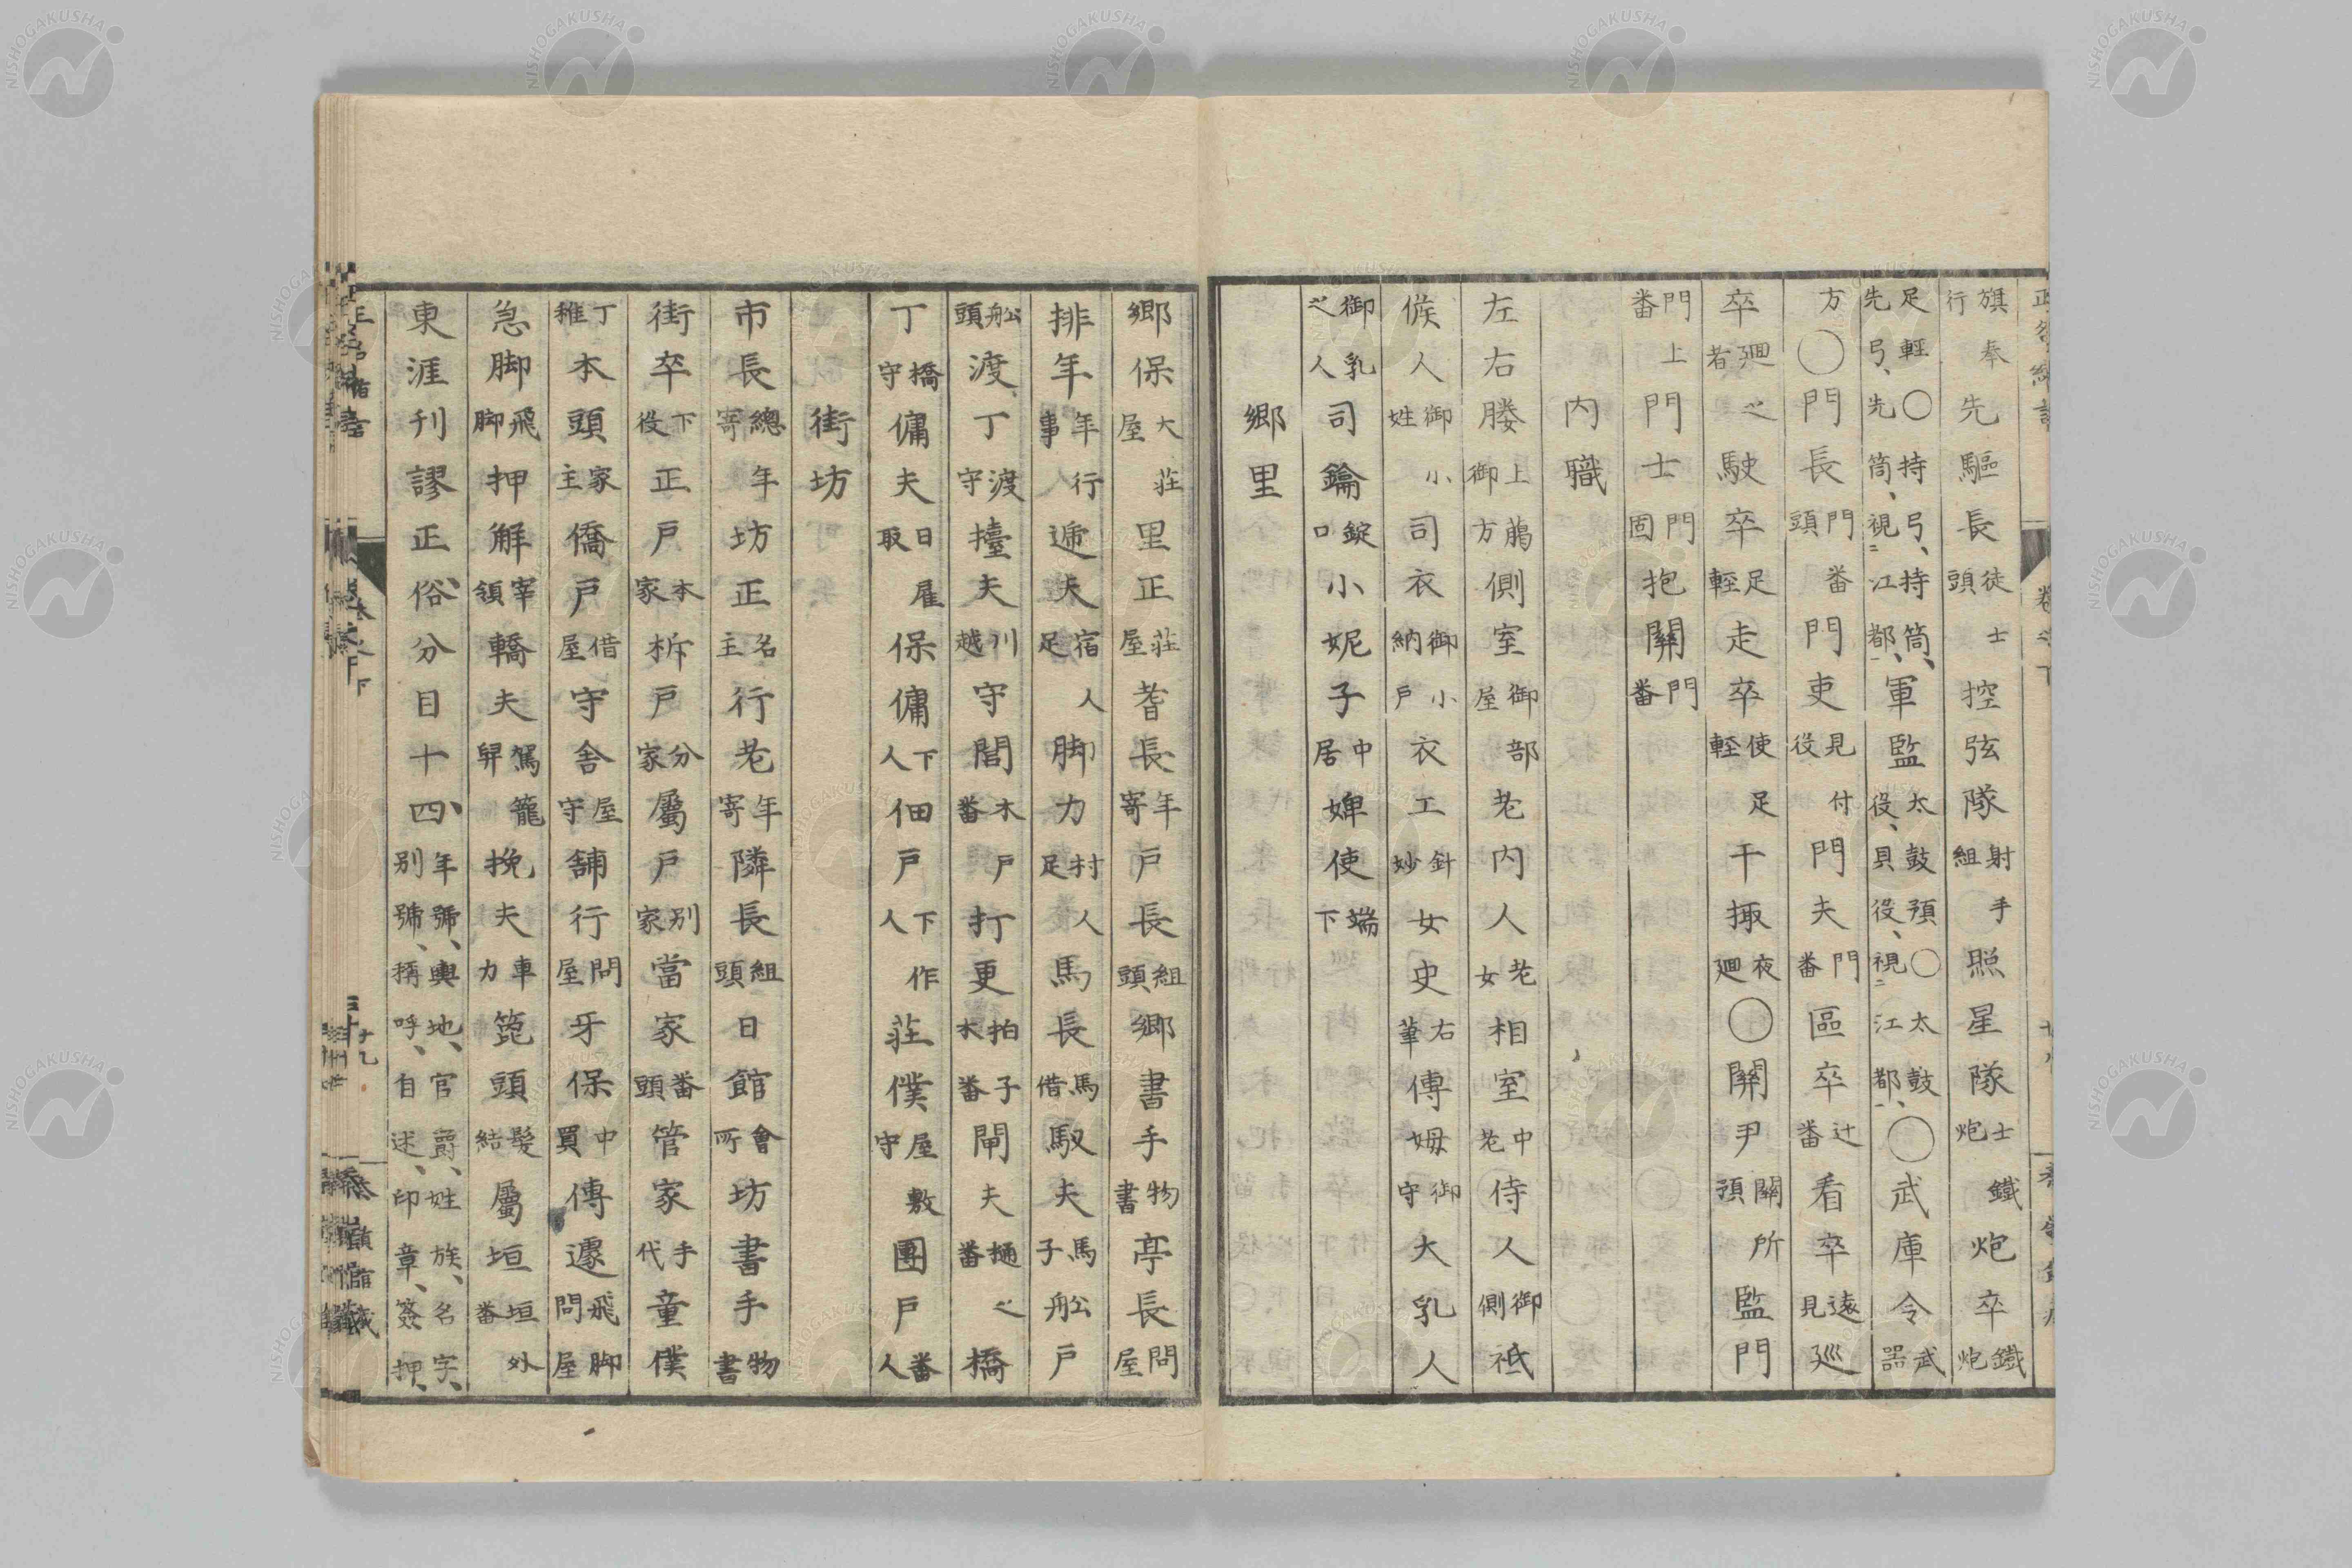 旗奉行先驅長徒士頭控弦隊射手組照星隊士鐵炮炮卒鐵炮
足輕○持弓、持筒、先弓、先筒、視二江都一、軍監太鼓預○太鼓役、貝役、視二江都一、○武庫令武器
方○門長門番頭門吏見付役門夫門番區卒辻番看卒遠見廵
卒廻之者駛卒足輕走卒使足輕干掫夜廻○關尹關所預監門
門上番門士門固抱關門番
内職
左右媵上﨟御方側室御部屋老内人老女相室中老侍人御側祗
候人御小姓司衣御小納戸衣工針妙女史右筆傅姆御守大乳人
御乳之人司鑰錠口小妮子中居婢使端下
鄉里
鄉保大莊屋里正莊屋耆長年寄戸長組頭鄉書手物書亭長問屋
排年年行事人遞夫宿人足脚力村人足馬長馬借馭夫馬子舩戸
舩頭渡丁渡守擡夫川越守閭木戸番打更拍子木番閘夫樋之番橋
丁橋守傭夫日雇取保傭下人佃戸下作人莊僕屋敷守團戸番人
街坊
市長總年寄坊正名主行老年寄隣長組頭日館會所坊書手物書
街卒下役正戸本家柝戸分家屬戸別家當家番頭管家手代童僕
丁稚本頭家主僑戸借屋守舎屋守舖行問屋牙保中買傳遽飛脚問屋
急脚飛脚押解宰領轎夫駕籠舁挽夫車力箆頭髮結屬垣垣外番
東涯刊謬正俗、分目十四、年號、輿地、官爵、姓族、名字、別號、稱呼、自述、印章、簽押、